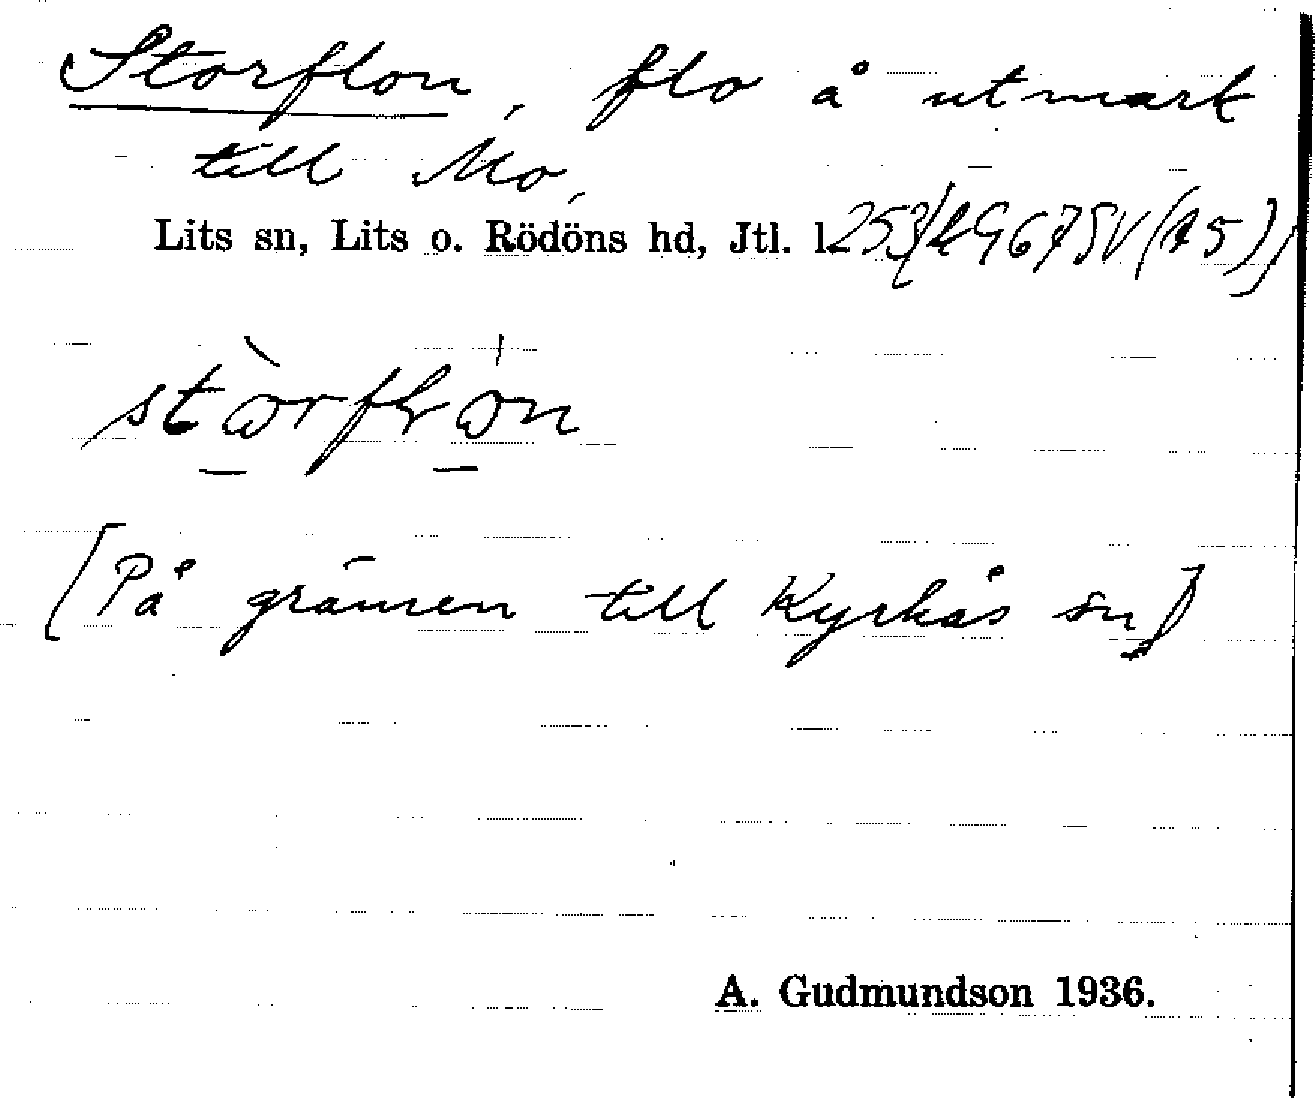 Storflon, flo å utmark
till Mo,
Lits sn, Lits o. Rödöns hd, Jtl. l.
[På gränsen till Kyrkås sn]
A. Gudmundson 1936.